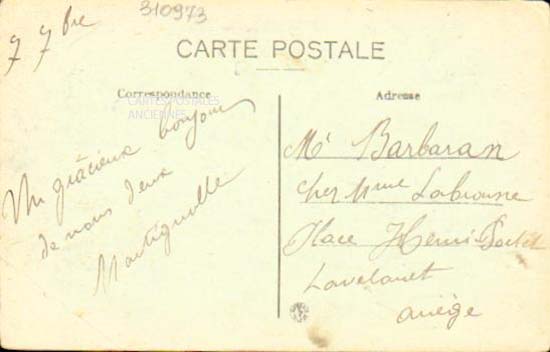 310973
7 7bre
CARTE POSTALE
Correspondance
CARTES POSTALES
ANCIENNES
Un grâcieux bonjour
de nous deux
Montignolle
Adresse
Mr Barbaran
chez Mme Labrousse
Place Henri
Lavelanet
Ariège